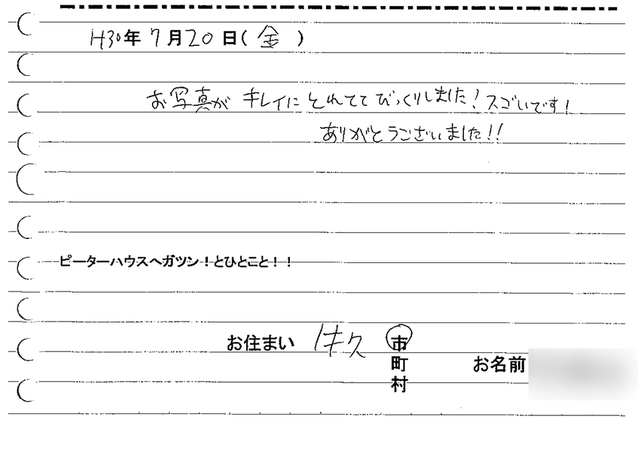 H30年 7月20日(金)
お写真が キレイに とれてて びっくりしました! スゴいです!
ありがとうございました!!
ピーターハウスへガツン!とひとこと!!
お住まい 佐久 市
町
村
お名前